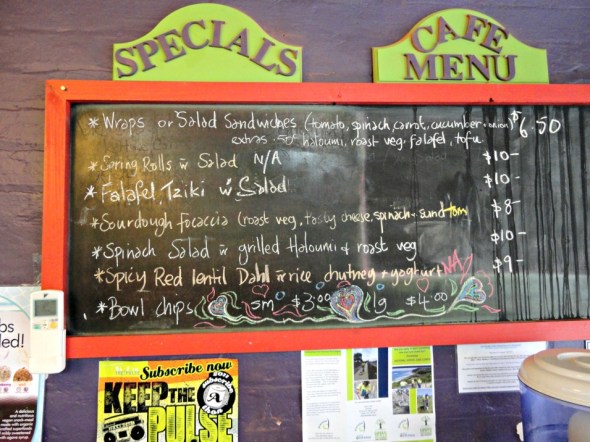 SPECIALS
CAFE
MENU
* Wraps or Salad Sandwiches (tomato, spinach, carrot, cucumber + onion) $6.50
extras .50¢ haloumi, roast veg. falafel, tofu
* Spring Rolls w Salad N/A $10-
* Falafel, Tziki w Salad $10-
* Sourdough Focaccia (roast veg, tasty cheese, spinach + sund tom $8-
* Spinach Salad w grilled Haloumi + roast veg $10-
* Spicy Red lentil Dahl w rice chutney + yoghurt N/A $9-
* Bowl chips sm $3.00 lg $4.00
Subscribe now
KEEP THE
PULSE